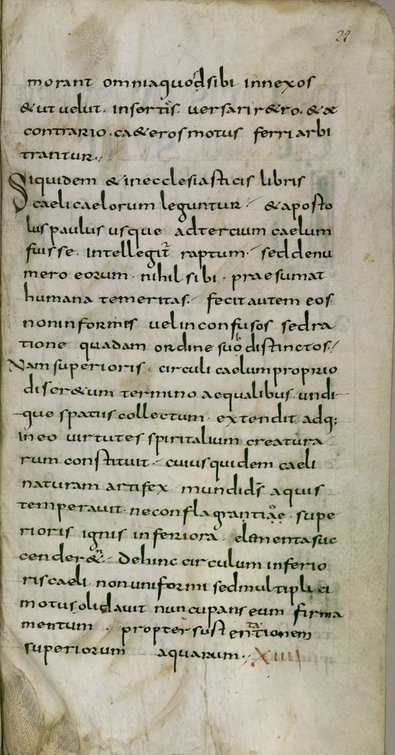 29
morant omniaquodsibi innexos
&utvolut · insertis versarir&ro · &æ
contrario · ca&eros motus ferri arbi
trantur ·,
Siquidem & inecclesiasticis libris
caelicaelorum leguntur · &aposto
lus paulus usque adtercium caelum
fuisse · intellegit̄ raptum · seddenu
mero eorum · nihil sibi · praesumat
humana temeritas · fecit autem eos ·
noninformis velinconfusos sedra
tione quadam ordine suo distinctos ·,
Nam superioris · circuli caelumproprio
discr&um termino aequalibus · undi
que spatiis collectum · extendit adq;
ineo virtutes spiritalium creatura
rum constituit · cuius quidem caeli
naturam artifex · mundi ds̄ aquis
temperavit · neconflagrantiae · supe
rioris ignis inferiora elementasuc
cender& · dehinc circulum inferio
ris caeli · nonuniformi sedmultiplici
motusolidavit nuncupans eum firma
mentum · propter sustentationem
superiorum aquarum ·,